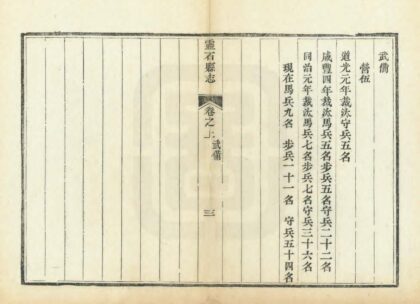 武備
營伍
道光元年裁汰守兵五名
咸豐四年裁汰馬兵五名步兵五名守兵二十二名
同治元年裁汰馬兵七名步兵七名守兵三十六名
現在馬兵九名 步兵一十一名 守兵五十四名
靈石縣志 卷之上 武備 三